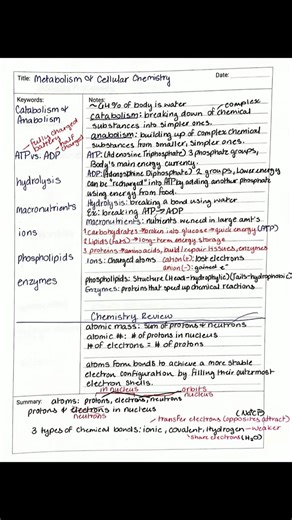 Title: Metabolism & Cellular Chemistry Date:
Keywords: Notes:
~64% of body is water
Catabolism & Anabolism
catabolism: breaking down of chemical
complex
substances into simpler ones.
anabolism: building up of complex chemical
substances from smaller, simpler ones.
fully charged battery
half charged
ATP vs. ADP
ATP: (Adenosine Triphosphate) 3 phosphate groups,
Body's main energy currency.
ADP: (Adenosine Diphosphate) 2 groups, lower energy
can be "recharged" into ATP by adding another phosphate
using energy from food.
hydrolysis
Hydrolysis: breaking a bond using water
Ex: breaking ATP → ADP
macronutrients
macronutrients: nutrients needed in large amts.
1 Carbohydrates → broken into glucose → quick energy (ATP)
2 Lipids (fats) → long-term energy storage
3 proteins → amino acids, build & repair tissues, enzymes
ions
Ions: changed atoms cation (+): lost electrons
anion (-): gained e⁻
phospholipids
phospholipids: Structure (Head-hydrophilic) (Tails-hydrophobic)
enzymes
Enzymes: proteins that speed up chemical reactions
Chemistry Review
atomic mass: sum of protons & neutrons
atomic #: # of protons in nucleus
# of electrons = # of protons
atoms form bonds to achieve a more stable
electron configuration by filling their outermost
electron shells.
in nucleus
orbits nucleus
Summary: atoms: protons, electrons, neutrons
protons & electrons in nucleus
neutrons
(NaCl)
transfer electrons (opposites attract)
3 types of chemical bonds: ionic, covalent, hydrogen → weaker
share electrons (H₂O)